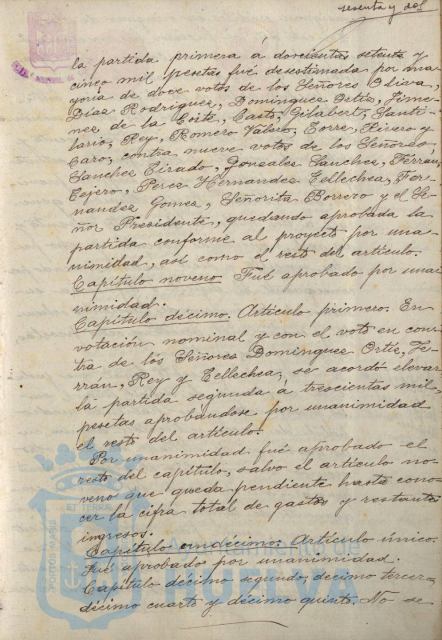 sesenta y dos
la partida primera á doscientas setenta y
cinco mil pesetas fué desestimada por ma-
yoría de doce votos de los Señores Oliva,
Díaz Rodríguez, Domínguez Ortiz, Jime-
nez de la Corte, Casto, Gilabert, Santi-
lario, Rey, Romero Valero, Torre, Rivero y
Caro, contra nueve votos de los Señores,
Sanchez Tirado, Gonzalez Sanchez, Terrau,
Tejero, Perez Hernandez Tellechea, Fer-
nandez Gomez, Señorita Borrero y el Se-
ñor Presidente, quedando aprobada la
partida conforme al proyecto por una-
nimidad, así como el resto del artículo.
Capítulo noveno Fué aprobado por una-
nimidad.
Capítulo décimo. Artículo primero. En
votación nominal y con el voto en con-
tra de los Señores Domínguez Ortiz, Te-
rrau, Rey y Tellechea, se acordó elevar
la partida segunda á trescientas mil
pesetas aprobandose por unanimidad
el resto del artículo.
Por unanimidad fué aprobado el
resto del capítulo, salvo el artículo no-
veno que queda pendiente hasta cono-
cer la cifra total de gastos y restante
ingresos.
Capítulo undécimo. Artículo único.
Fué aprobado por unanimidad.
Capítulo décimo segundo, décimo tercero
décimo cuarto y décimo quinto. No se
Ayuntamiento de
HUELVA
PORTUS MARIS
ET TERRAE